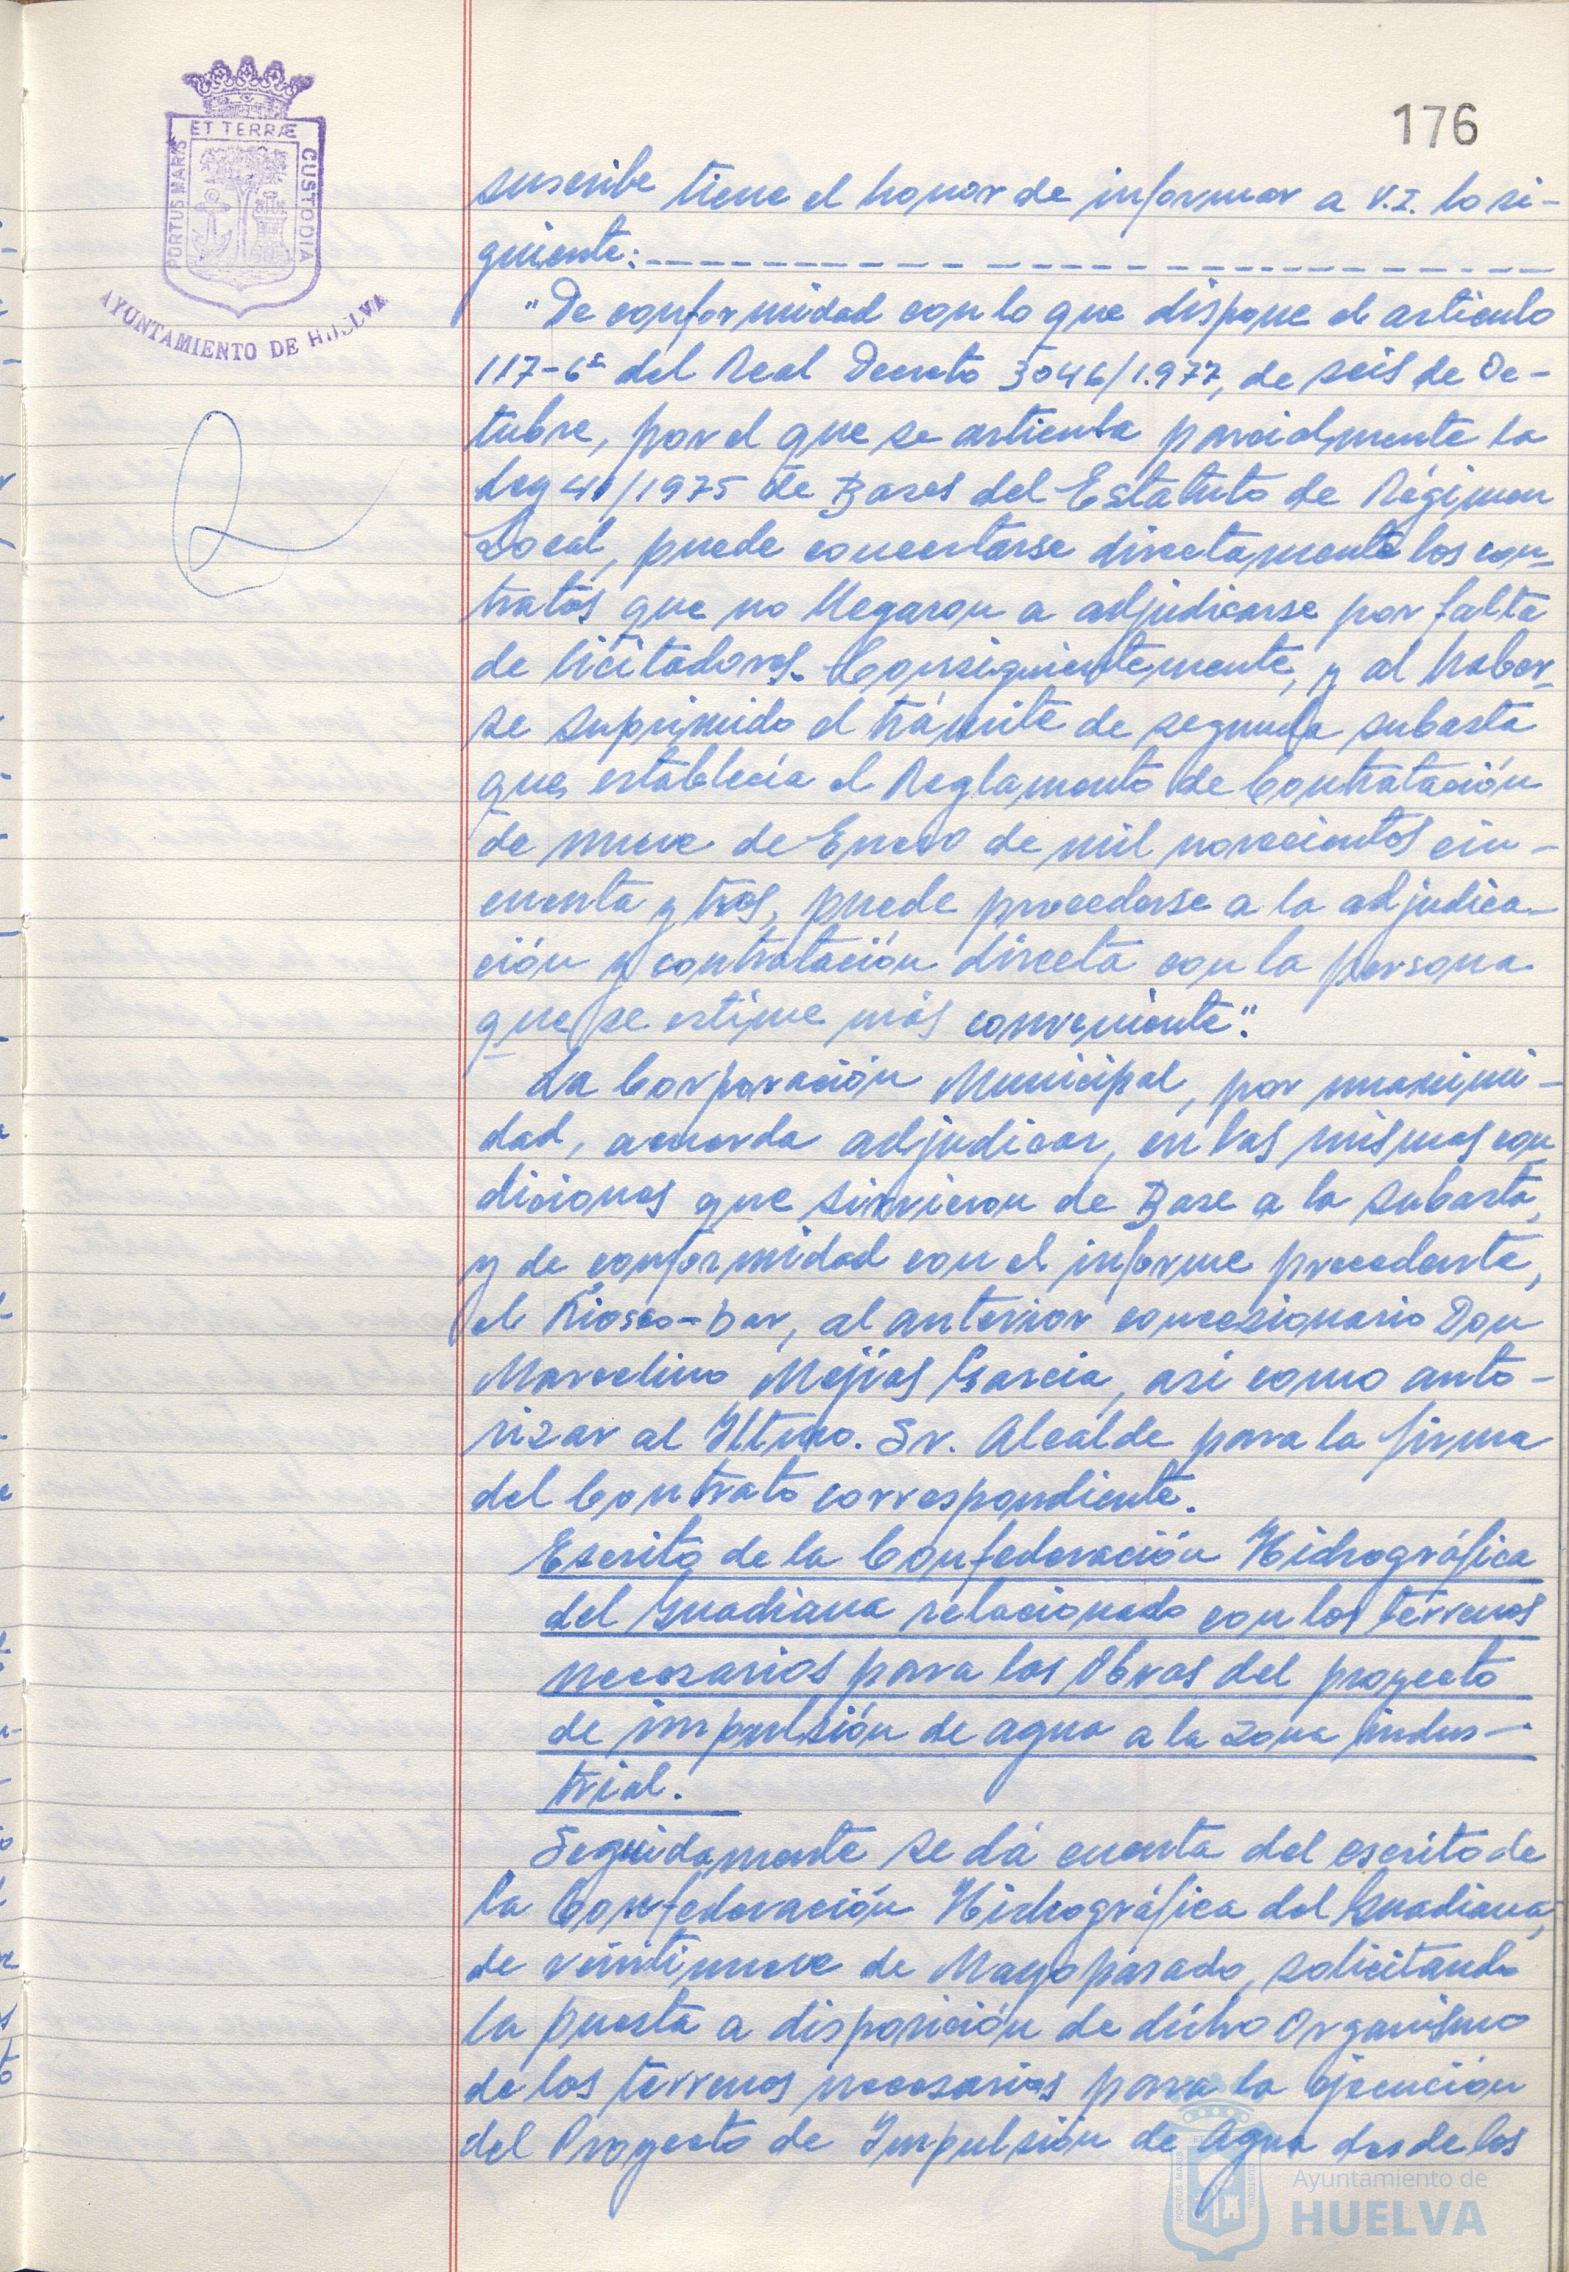 176
ET TERRÆ
PORTUS MARIS
CUSTODIA
AYUNTAMIENTO DE HUELVA
suscribe tiene el honor de informar a V.I. lo si-
guiente:
"De conformidad con lo que dispone el articulo
117-6º del Real Decreto 3046/1.977, de seis de Oc-
tubre, por el que se articula parcialmente la
Ley 41/1975 de Bases del Estatuto de Régimen
Local, puede concertarse directamente los con-
tratos que no llegaron a adjudicarse por falta
de licitadores. Consiguientemente, y al haber-
se suprimido el trámite de segunda subasta
que establecía el Reglamento de Contratación
de nueve de Enero de mil novecientos cin-
cuenta y tres, puede procederse a la adjudica-
ción y contratación directa con la persona
que se estime más conveniente".
La Corporación Municipal, por unanimi-
dad, acuerda adjudicar, en las mismas con-
diciones que sirvieron de Base a la subasta,
y de conformidad con el informe precedente,
el Kiosco-bar, al anterior concesionario Don
Marcelino Mejías Garcia, asi como auto-
rizar al Iltmo. Sr. Alcalde para la firma
del Contrato correspondiente.
Escrito de la Confederación Hidrográfica
del Guadiana relacionado con los terrenos
necesarios para las Obras del proyecto
de impulsión de agua a la zona indus-
trial.
Seguidamente se dá cuenta del escrito de
la Confederación Hidrográfica del Guadiana,
de veintinueve de Mayo pasado, solicitando
la puesta a disposición de dicho Organismo
de los terrenos necesarios para la ejecución
del Proyecto de Impulsión de Agua desde los
Ayuntamiento de
HUELVA